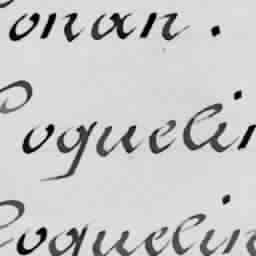 Conan.
Coquelin
Coquelin